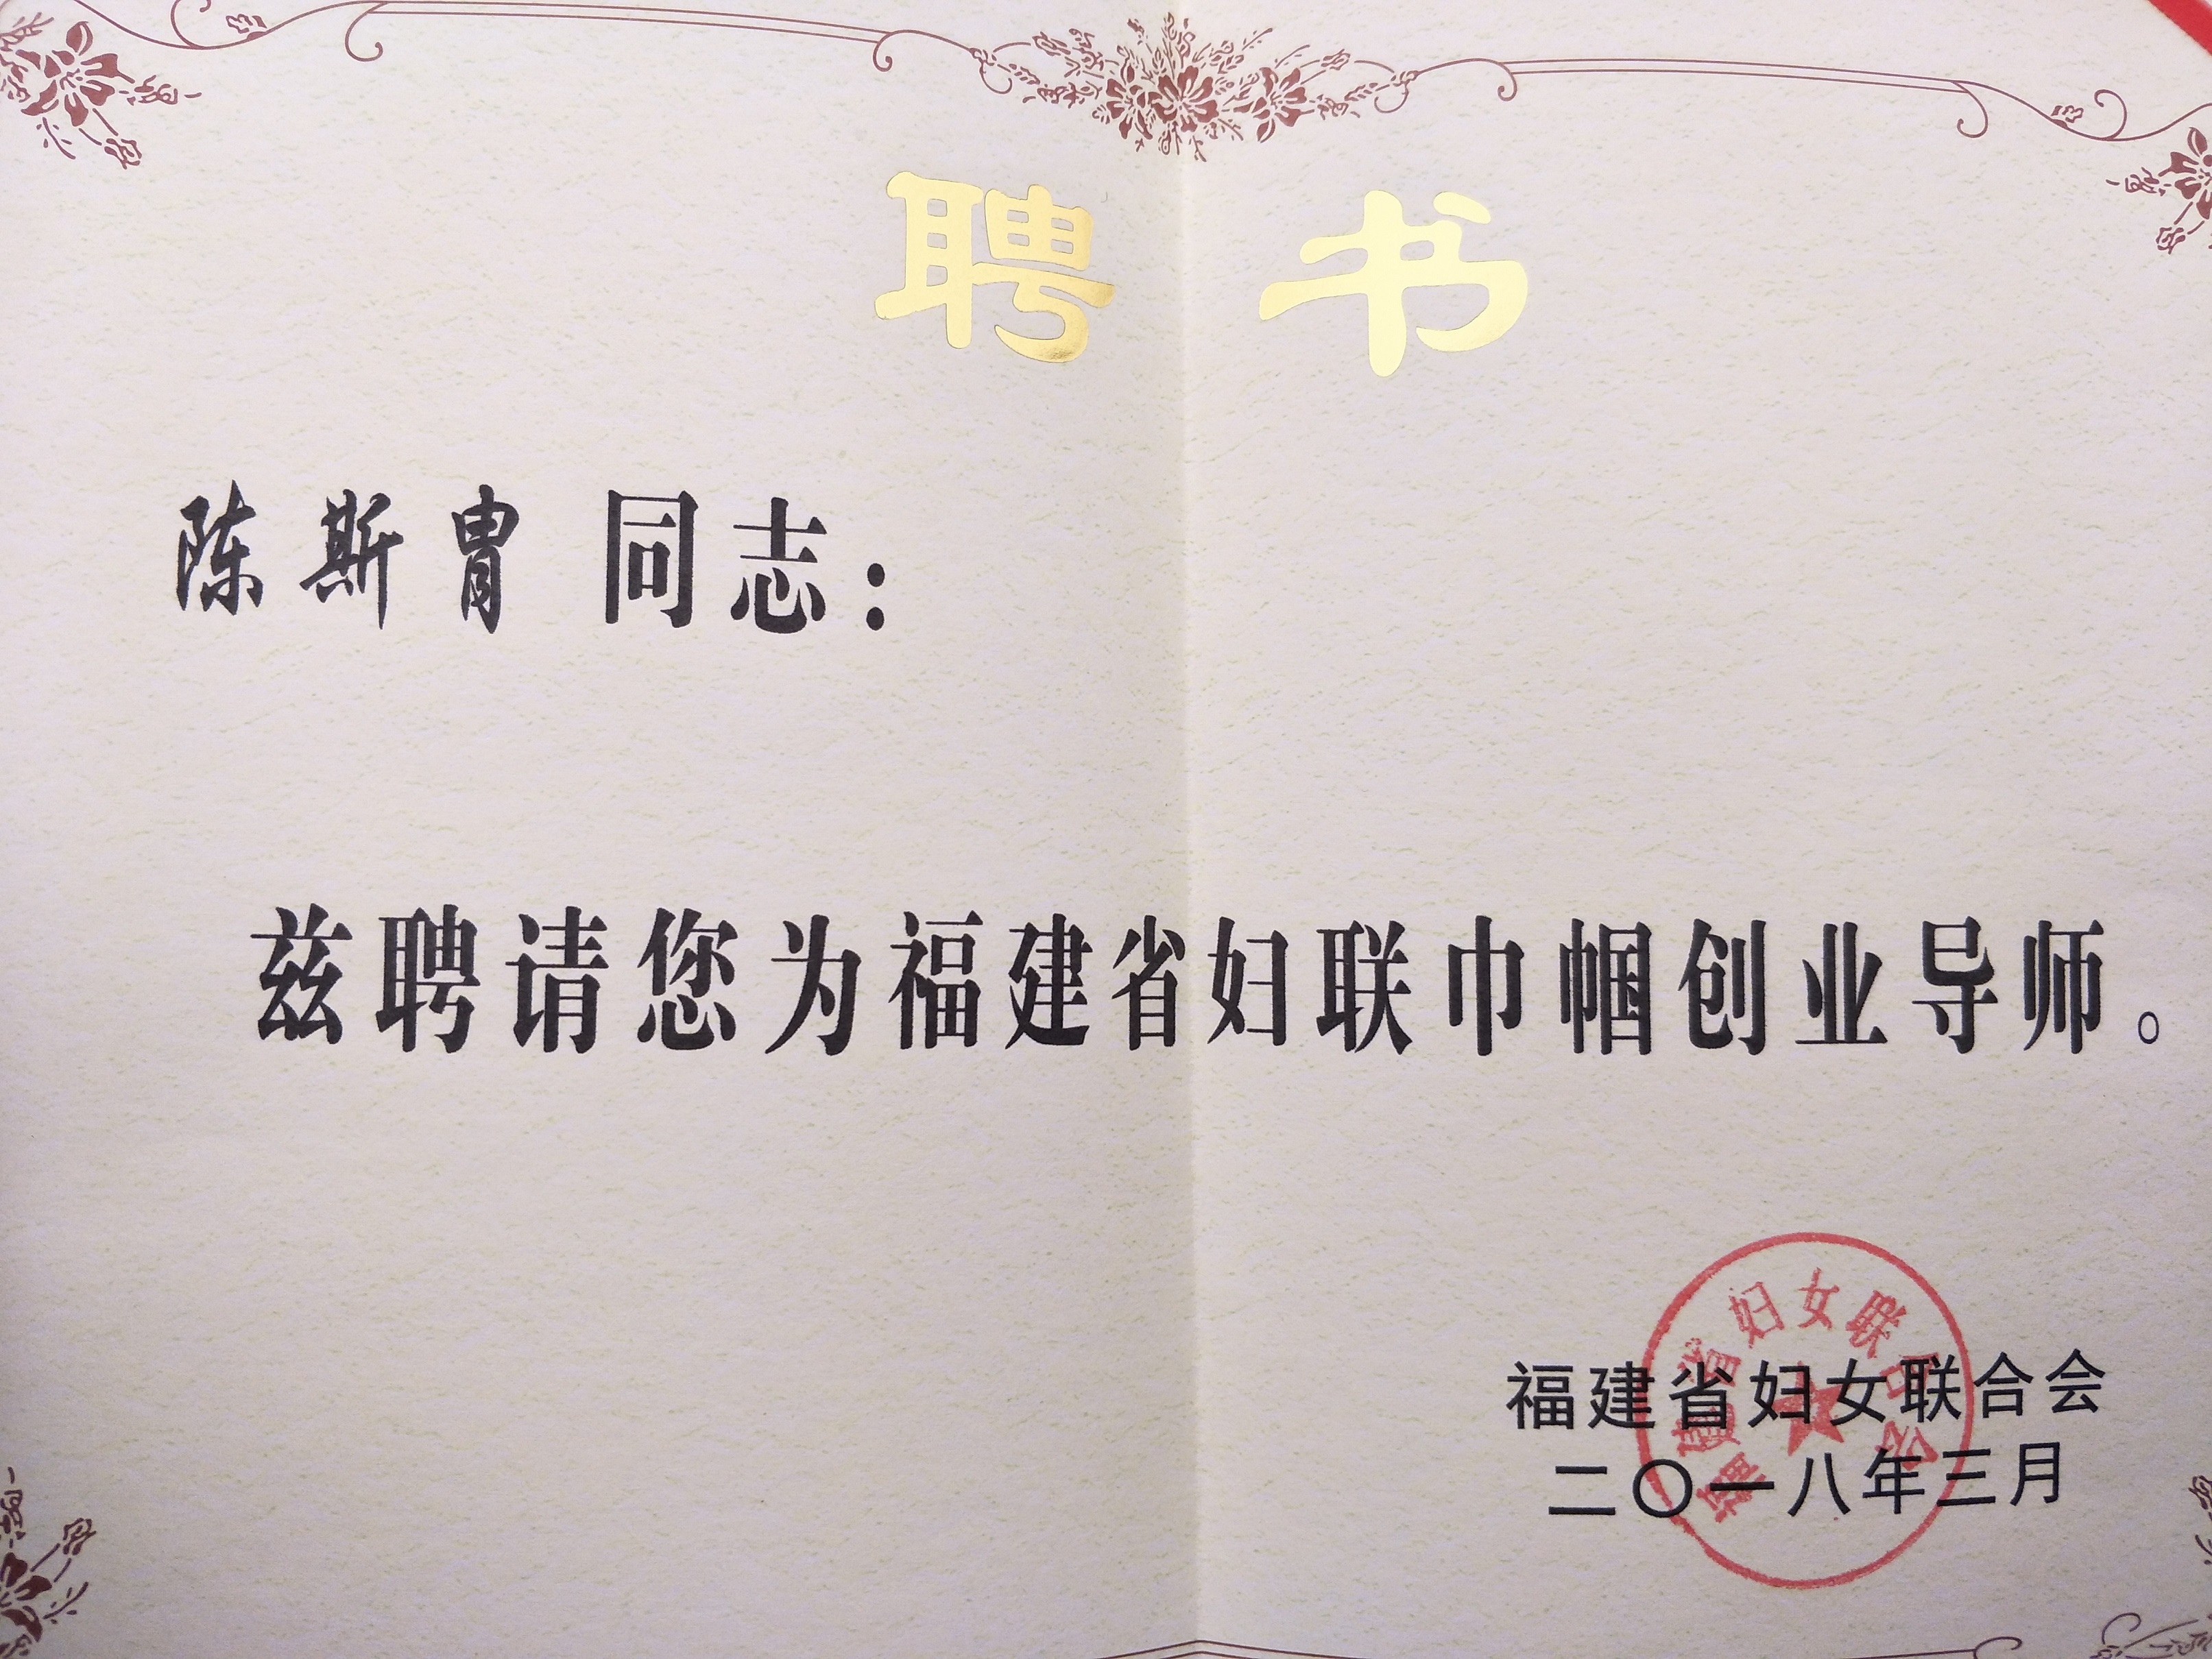 聘书
陈斯胄 同志：
兹聘请您为福建省妇联巾帼创业导师。
福建省妇女联合会
福建省妇女联合会
二〇一八年三月